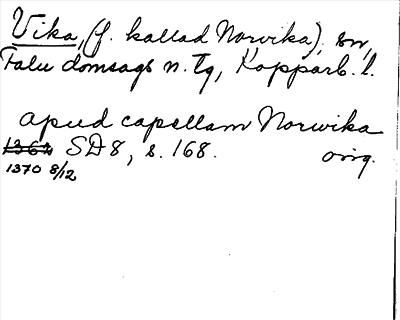 Vika, (f. kallad Norvika), sn,
Falu domsags n. tg, Kopparb. l.
apud capellam Norwika
1367 SD 8, s. 168. orig.
1370 8/12